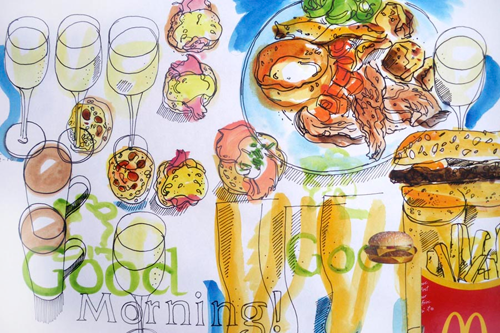 Good Goo
Morning!